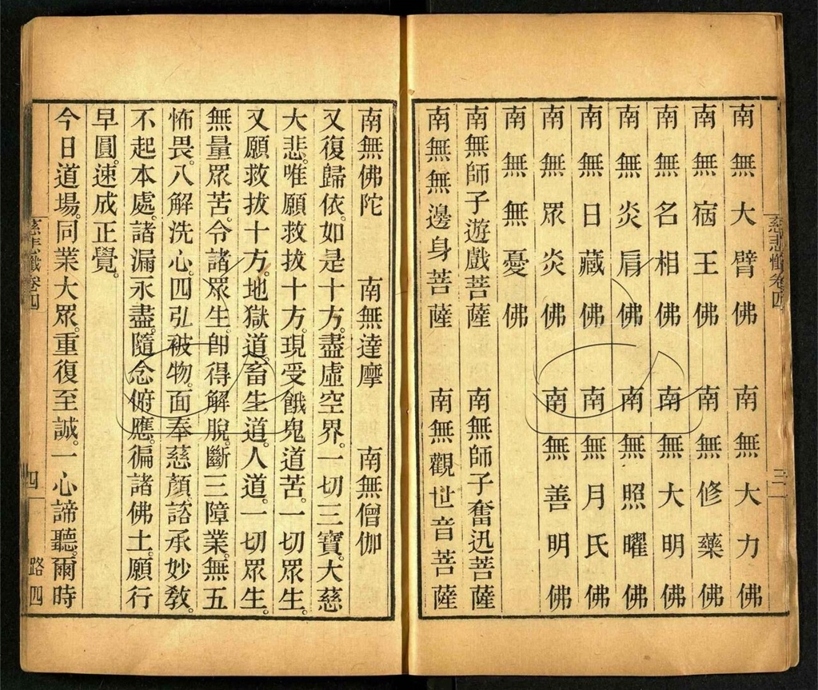 南無大臂佛 南無大力佛
南無宿王佛 南無修藥佛
南無名相佛 南無大明佛
南無炎肩佛 南無照曜佛
南無日藏佛 南無月氏佛
南無眾炎佛 南無善明佛
南無無憂佛
南無師子遊戲菩薩 南無師子奮迅菩薩
南無無邊身菩薩 南無觀世音菩薩
慈悲懺卷四 三
南無佛陀 南無達摩 南無僧伽
又復歸依。如是十方。盡虛空界。一切三寶。大慈
大悲。唯願救拔十方。現受餓鬼道苦。一切眾生。
又願救拔十方。地獄道。畜生道。人道。一切眾生。
無量眾苦。令諸眾生。卽得解脫。斷三障業。無五
怖畏。八解洗心。四弘被物。面奉慈顏。諮承妙敎。
不起本處。諸漏永盡。隨念俯應。徧諸佛土。願行
早圓。速成正覺。
今日道場。同業大眾。重復至誠。一心諦聽。爾時
慈悲懺卷四 四 路四